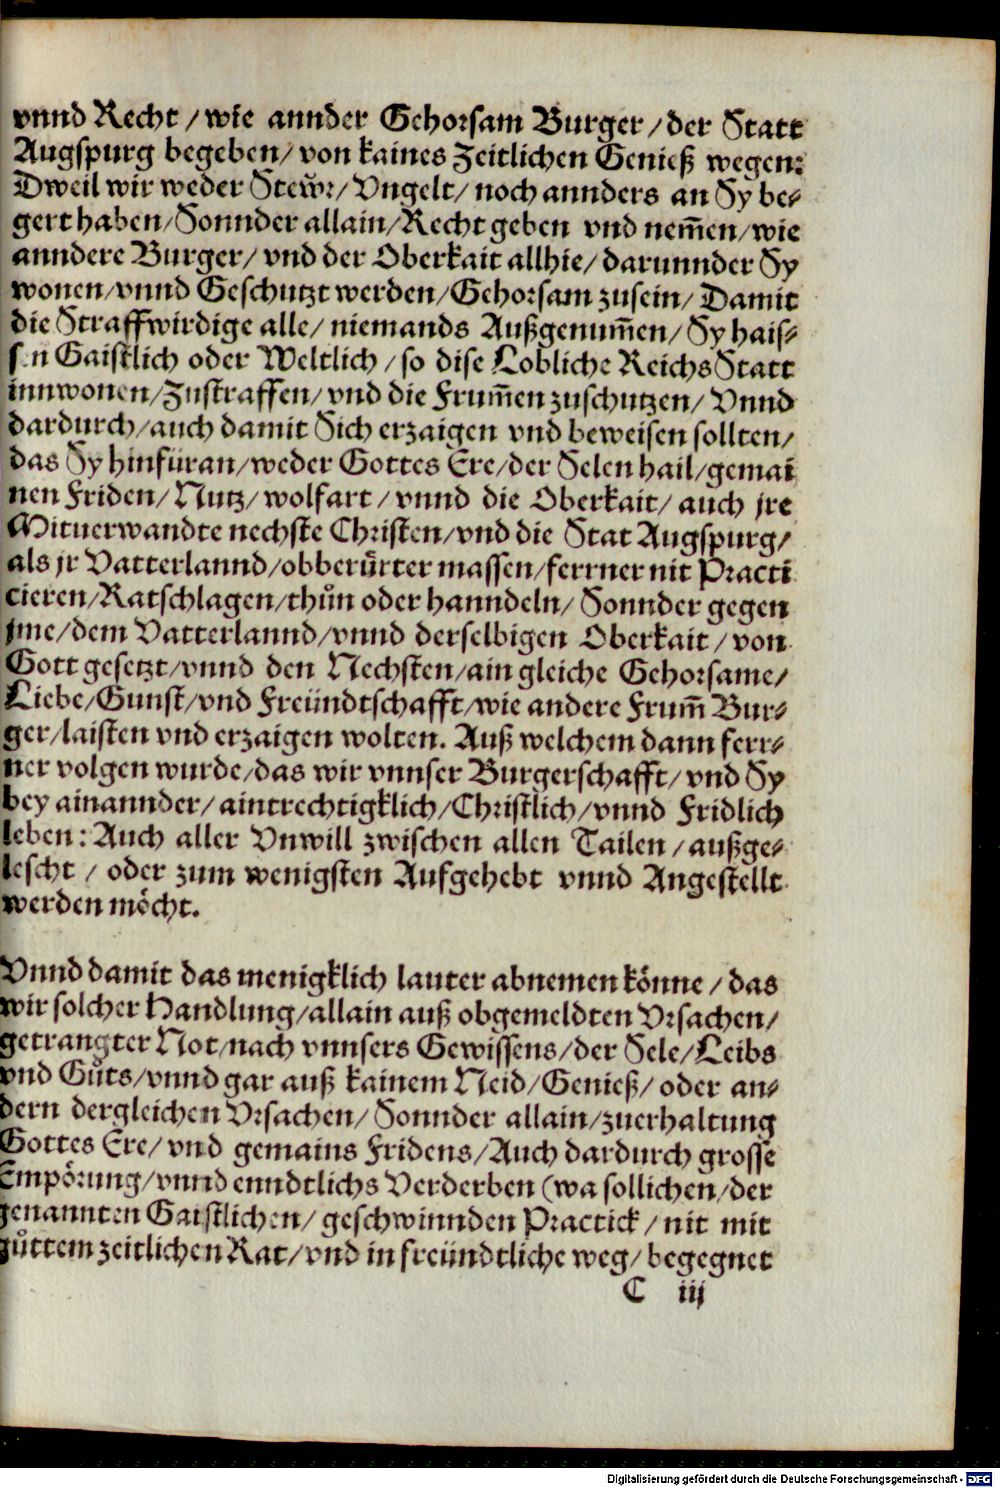 vnnd Recht / wie annder Gehorsam Burger / der Statt
Augspurg begeben / von kaines Zeitlichen Genieß wegen:
Dweil wir weder Stewͤr / Vngelt / noch annders an Sy be⸗
gert haben / Sonnder allain / Recht geben vnd nem̄en / wie
anndere Burger / vnd der Oberkait allhie / darunnder Sy
wonen / vnnd Geschutzt werden / Gehorsam zusein / Damit
die Straffwirdige alle / niemands Außgenum̄en / Sy hais⸗
sen Gaistlich oder Weltlich / so dise Lobliche ReichsStatt
innwonen / Zustraffen / vnd die Frum̄en zuschutzen / Vnnd
dardurch / auch damit Sich erzaigen vnd beweisen sollten /
das Sy hinfüran / weder Gottes Ere / der Selen hail / gemai
nen Friden / Nutz / wolfart / vnnd die Oberkait / auch jre
Mituerwandte nechste Christen / vnd die Stat Augspurg /
als jr Vatterlannd / obberürter massen / ferrner nit Practi
cieren / Ratschlagen / thůn oder hanndeln / Sonnder gegen
jme / dem Vatterlannd / vnnd derselbigen Oberkait / von
Gott gesetzt / vnnd den Nechsten / ain gleiche Gehorsame /
Liebe / Gunst / vnd Freündtschafft / wie andere Frum̄ Bur⸗
ger / laisten vnd erzaigen wolten. Auß welchem dann ferr⸗
ner volgen wurde / das wir vnnser Burgerschafft / vnd Sy
bey ainannder / aintrechtigklich / Christlich / vnnd Fridlich
leben: Auch aller Vnwill zwischen allen Tailen / außge⸗
lescht / oder zum wenigsten Aufgehebt vnnd Angestellt
werden moͤcht.
Vnnd damit das menigklich lauter abnemen koͤnne / das
wir solcher Handlung / allain auß obgemeldten Vrsachen /
getrangter Not / nach vnnsers Gewissens / der Sele / Leibs
vnd Gůts / vnnd gar auß kainem Neid / Genieß / oder an⸗
dern dergleichen Vrsachen / Sonnder allain / zuerhaltung
Gottes Ere / vnd gemains Fridens / Auch dardurch grosse
Empoͤrung / vnnd enndtlichs Verderben (wa sollichen / der
genannten Gaistlichen / geschwinnden Practick / nit mit
gůttem zeitlichen Rat / vnd in freündtliche weg / begegnet
C iij
Digitalisierung gefördert durch die Deutsche Forschungsgemeinschaft - DFG